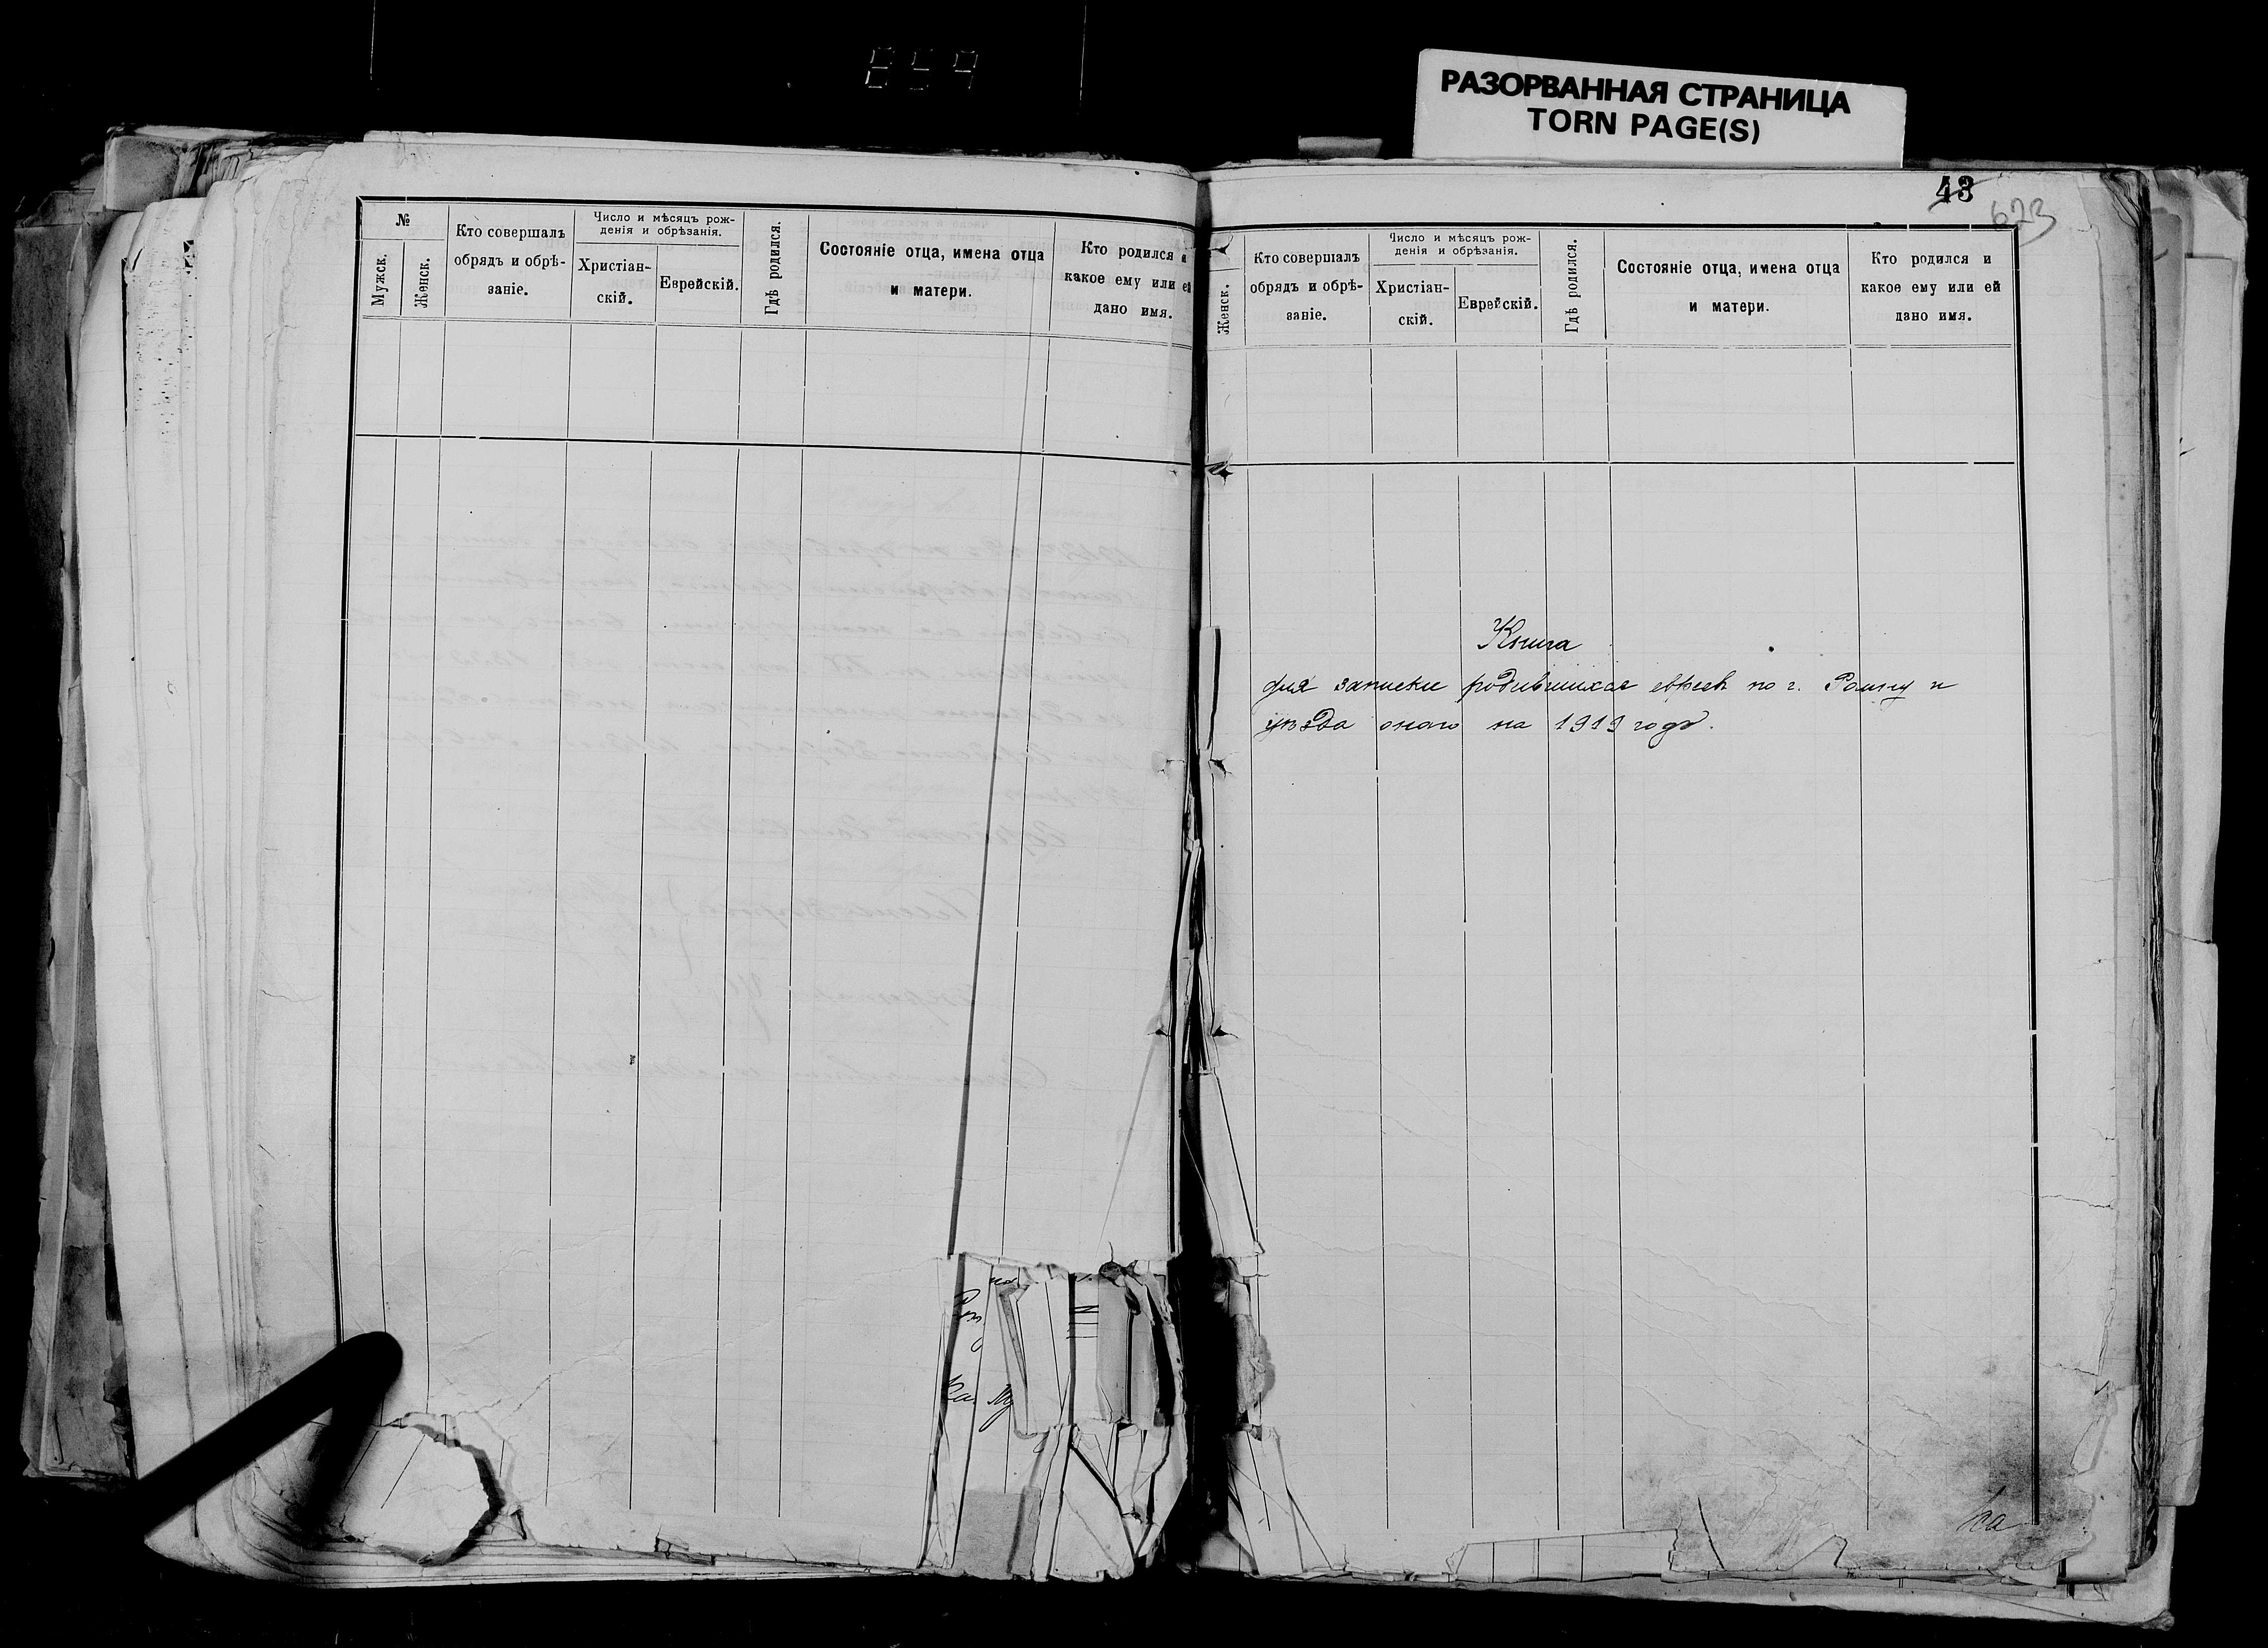 РАЗОРВАННАЯ СТРАНИЦА
TORN PAGE(S)
№
Мужск.
Женск.
Кто совершалъ
обрядъ и обрѣ-
заніе.
Число и мѣсяцъ рож-
денія и обрѣзанія.
Христіан-
скій.
Еврейскій.
Гдѣ родился.
Состояніе отца, имена отца
и матери.
Кто родился и
какое ему или ей
дано имя.
43
623
Женск.
Кто совершалъ
обрядъ и обрѣ-
заніе.
Число и мѣсяцъ рож-
денія и обрѣзанія.
Христіан-
скій.
Еврейскій.
Гдѣ родился.
Состояніе отца, имена отца
и матери.
Кто родился и
какое ему или ей
дано имя.
Книга
для записки родившихся евреевъ по г. и
уѣзда оного на 1919 годъ.